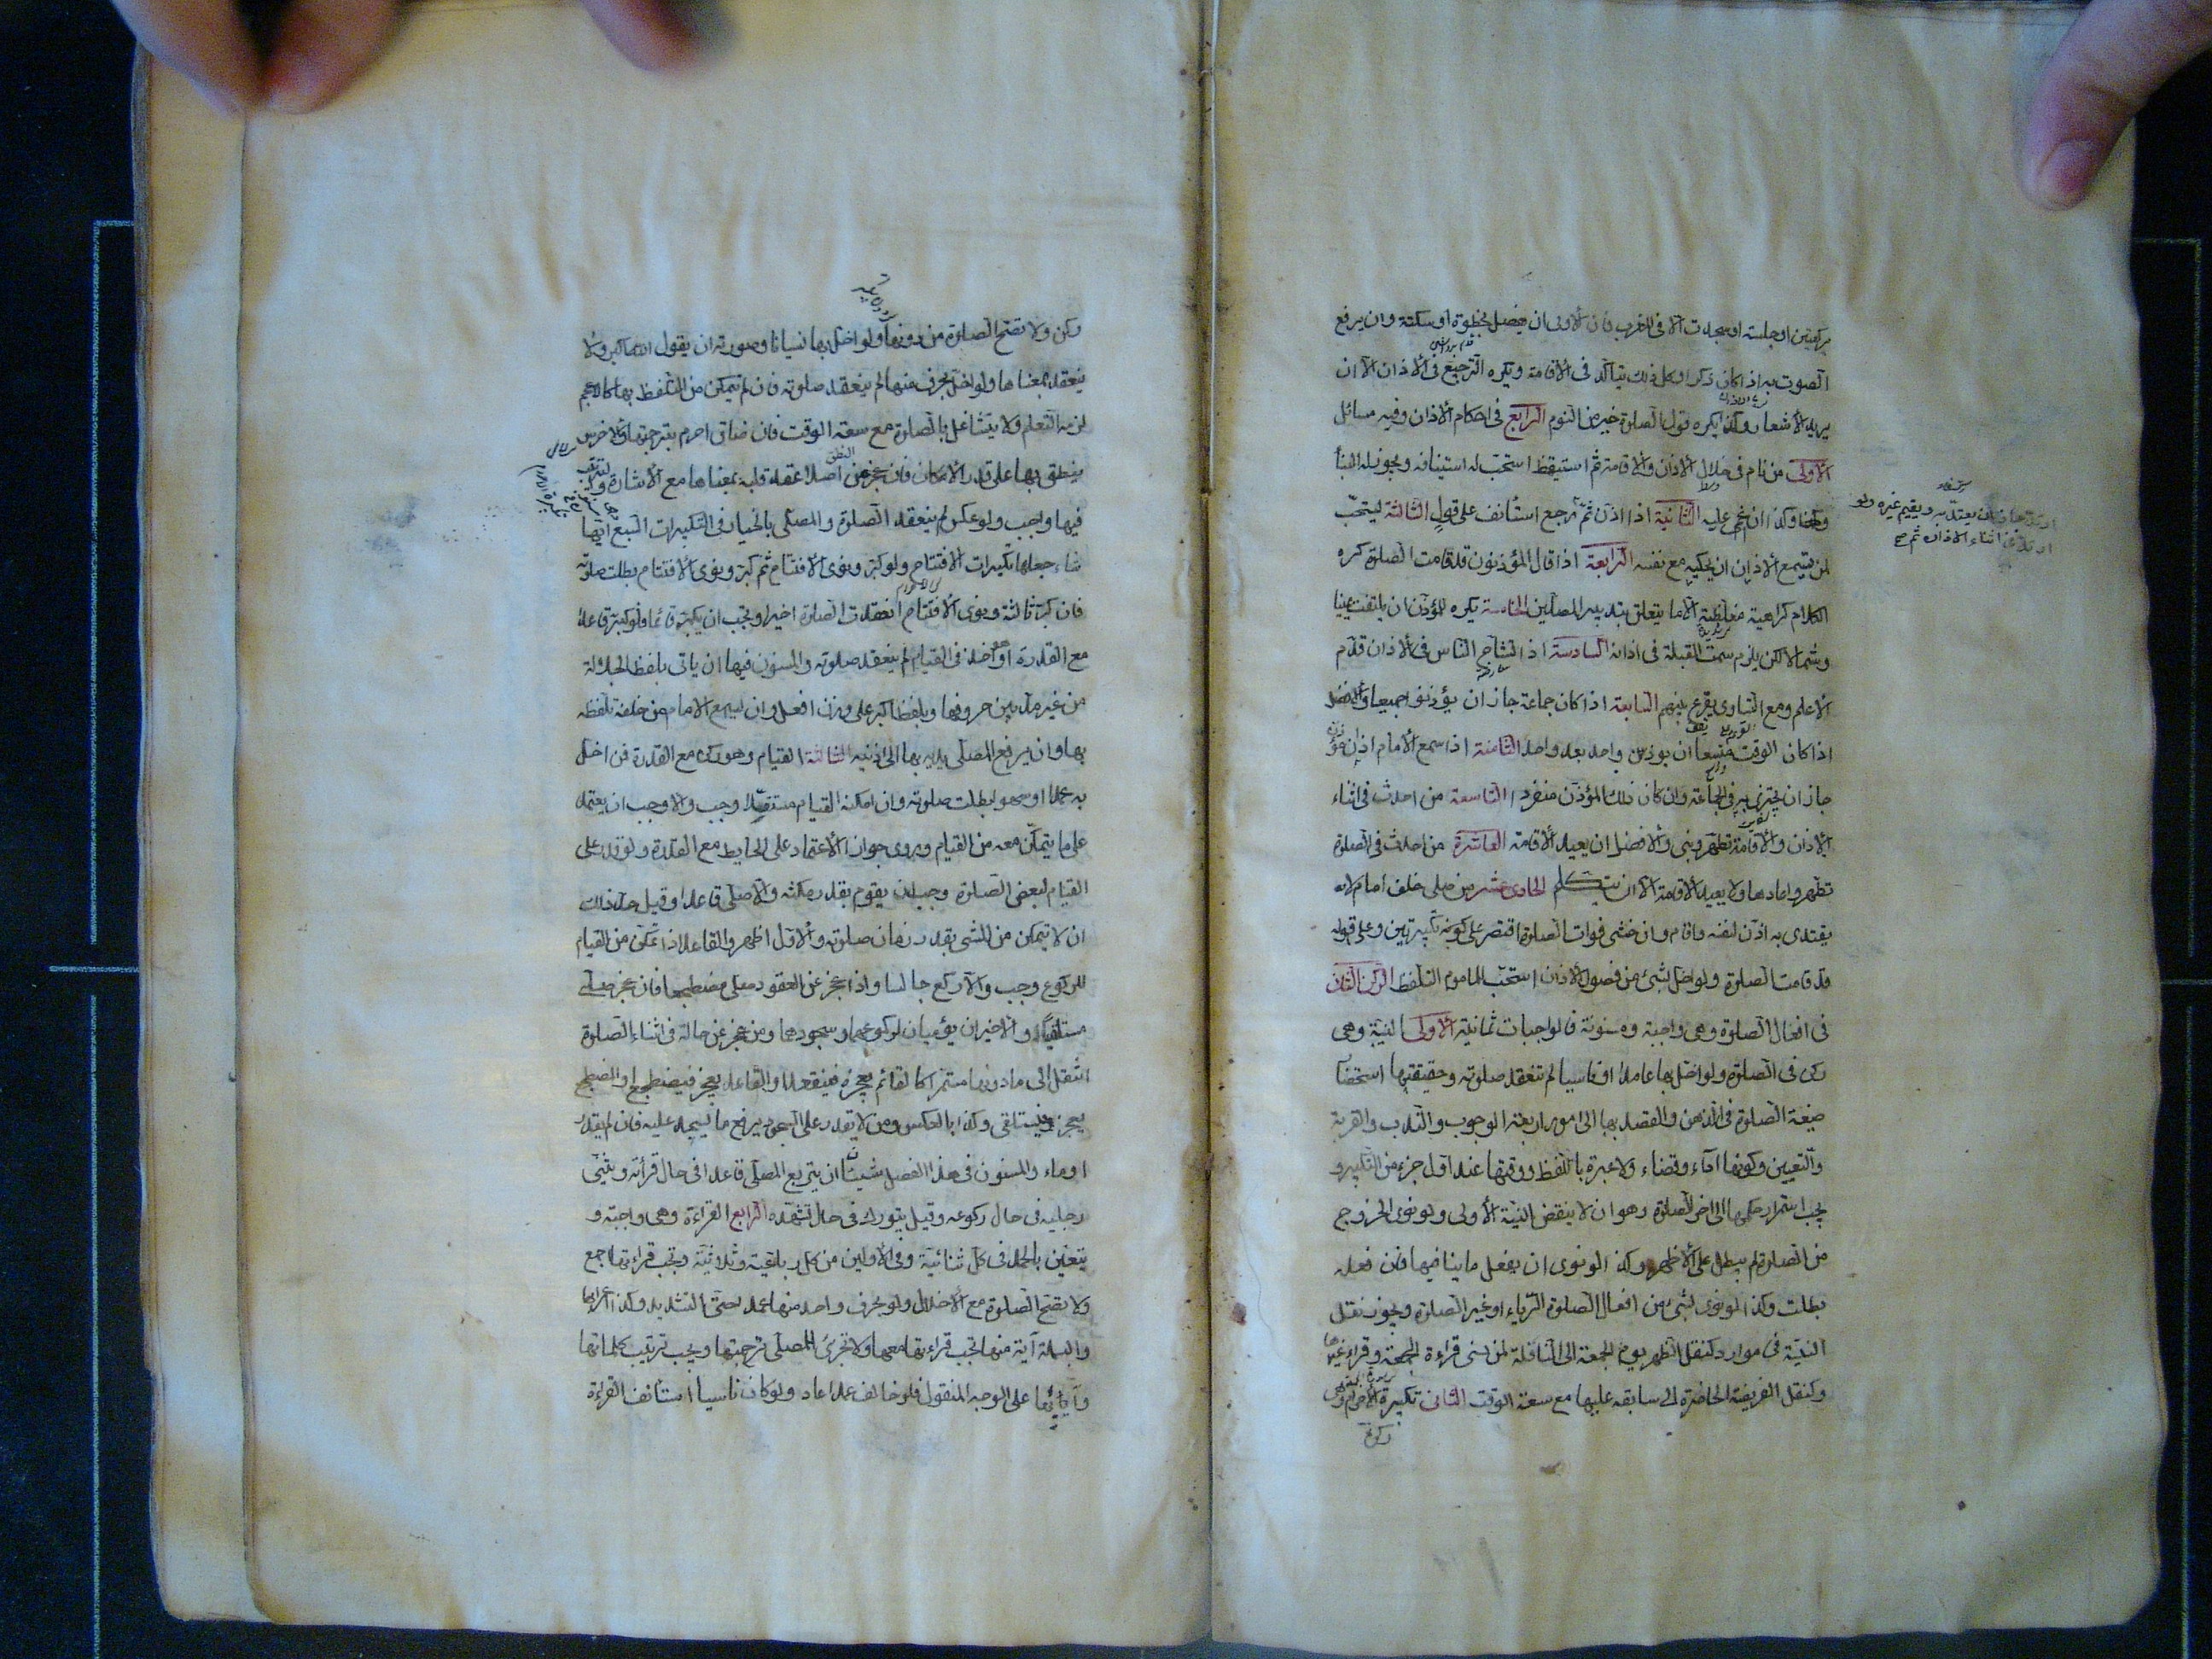 بركعتين او جلسة او سجدة الا فى المغرب فان الاولى ان يفصل بخطوة او سكتة وان يرفع
الصوت به اذا كان ذكرا وكل ذلك يتأكد فى الاقامة ويكره الترجيع فى الاذان الا ان
يريد الاشعار وكذا يكره قول الصلوة خير من النوم الرابع فى احكام الاذان وفيه مسائل
الاولى من نام فى خلال الاذان والاقامة ثم استيقظ استحب له استينافه ويجوز له البنا
وكذا ان اغمى عليه الثانية اذا اذن ثم ارتد جاز ان يعتد به ويقيم غيره ولو
ارتد فى اثناء الاذان ثم رجع استأنف على قول الثالثة يستحب
لمن يسمع الاذان ان يحكيه مع نفسه الرابعة اذا قال المؤذنون قد قامت الصلوة كره
الكلام كراهية مغلظة الا ما يتعلق بتدبير المصلين الخامسة يكره للمؤذن ان يلتفت يمينا
وشمالا لكن يلزم سمت القبلة فى اذانه السادسة اذا تشاح الناس فى الاذان قدم
الاعلم ومع التساوى يقرع بينهم السابعة اذا كان جماعة جاز ان يؤذنوا جميعا والافضل
اذا كان الوقت متسعا ان يؤذن واحد بعد واحد الثامنة اذا سمع الامام اذان مؤذن
جاز ان يجتزى به فى الجماعة وان كان ذلك المؤذن منفردا التاسعة من احدث فى اثناء
الاذان والاقامة تطهر وبنى والافضل ان يعيد الاقامة العاشرة من احدث فى الصلوة
تطهر واعادها ولا يعيد الاقامة الا ان يتكلم الحادى عشر من صلى خلف امام لا
يقتدى به اذن لنفسه واقام وان خشى فوات الصلوة اقتصر على تكبيرتين وعلى قوله
قد قامت الصلوة ولو اخل بشىء من فصول الاذان استحب للماموم التلفظ الركن الثانى
فى افعال الصلوة وهى واجبة ومسنونة فالواجبات ثمانية الاولى النية وهى
ركن فى الصلوة ولو اخل بها عامدا او ناسيا لم تنعقد صلوته وحقيقتها استحضار
صفة الصلوة فى الذهن والقصد بها الى امور اربعة الوجوب والندب والقربة
والتعيين وكونها اداء وقضاء ولا عبرة باللفظ ووقتها عند اول جزء من التكبير و
يجب استمرار حكمها الى اخر الصلوة وهو ان لا ينقض النية الاولى ولو نوى الخروج
من الصلوة لم يبطل على الاظهر وكذا لو نوى ان يفعل ما ينافيها فان فعله
بطلت وكذا لو نوى بشىء من افعال الصلوة الرياء او غير الصلوة ويجوز نقل
النية فى موارد كنقل الظهر يوم الجمعة الى النافلة لمن نسى قراءة الجمعة وقراء غيرها
وكنقل الفريضة الحاضرة الى سابقه عليها مع سعة الوقت الثانى تكبيرة الاحرام وهى
ركن ولا تصح الصلوة من دونها ولو اخل بها نسيانا وصورته ان يقول الله اكبر ولا
ينعقد بمعناها ولو اخل بحرف منها لم ينعقد صلوته فان لم يتمكن من التلفظ بها كالاعجم
لزمه التعلم ولا يتشاغل بالصلوة مع سعة الوقت فان ضاق احرم بترجمتها والاخرس
ينطق بها على قدر الامكان فان عجز عن النطق اصلا عقد قلبه بمعناها مع الاشارة والترتيب
فيها واجب ولو عكس لم ينعقد الصلوة والمصلى بالخيار فى التكبيرات السبع ايتها
شاء جعلها تكبيرات الافتتاح ولو كبر ونوى الافتتاح ثم كبر ونوى الافتتاح بطلت صلوته
فان كبر ثالثة ونوى الافتتاح انعقدت الصلوة اخيرا ويجب ان يكبر قائما فلو كبر قاعدا
مع القدرة او هو اخذ فى القيام لم ينعقد صلوته والمسنون فيها ان ياتى بلفظ الجلالة
من غير مد بين حروفها وبلفظ اكبر على وزن افعل وان يسمع الامام من خلفه تلفظه
بها وان يرفع المصلى يديه بها الى اذنيه الثالثة القيام وهو ركن مع القدرة فمن اخل
به عمدا او سهوا بطلت صلوته وان امكنه القيام مستقلا وجب والا وجب ان يعتمد
على ما يتمكن معه من القيام وروى جواز الاعتماد على الحايط مع القدرة ولو قدر على
القيام لبعض الصلوة وجب ان يقوم بقدر مكنته والا صلى قاعدا وقيل حد ذلك
ان لا يتمكن من المشى بقدر زمان صلوته والاول اظهر والقاعد اذا تمكن من القيام
للركوع وجب والا ركع جالسا واذا عجز عن القعود صلى مضطجعا فان عجز صلى
مستلقيا والاخيران يؤميان لركوعهما وسجودهما ومن عجز عن حالة فى اثناء الصلوة
انتقل الى ما دونها مستمرا كالقائم يعجز فيقعد او القاعد يعجز فيضطجع او المضطجع
يعجز فيستلقى وكذا بالعكس ومن لا يقدر على السجود يرفع ما يسجد عليه فان لم يقدر
اوماء والمسنون فى هذا الفصل شيئان ان يتربع المصلى قاعدا فى حال قرأته ويثنى
رجليه فى حال ركوعه وقيل يتورك فى حال تشهده الرابع القراءة وهى واجبة و
يتعين بالحمد فى كل ثنائية وفى الاوليين من كل رباعية وثلاثية ويجب قراءتها اجمع
ولا تصح الصلوة مع الاخلال ولو بحرف واحد منها عمدا حتى التشديد وكذا اعرابها
والبسملة آية منها تجب قراءتها معها ولا تجزى المصلى ترجمتها ويجب ترتيب كلماتها
وآياتها على الوجه المنقول فلو خالف عمدا اعاد ولو كان ناسيا استأنف القراءة